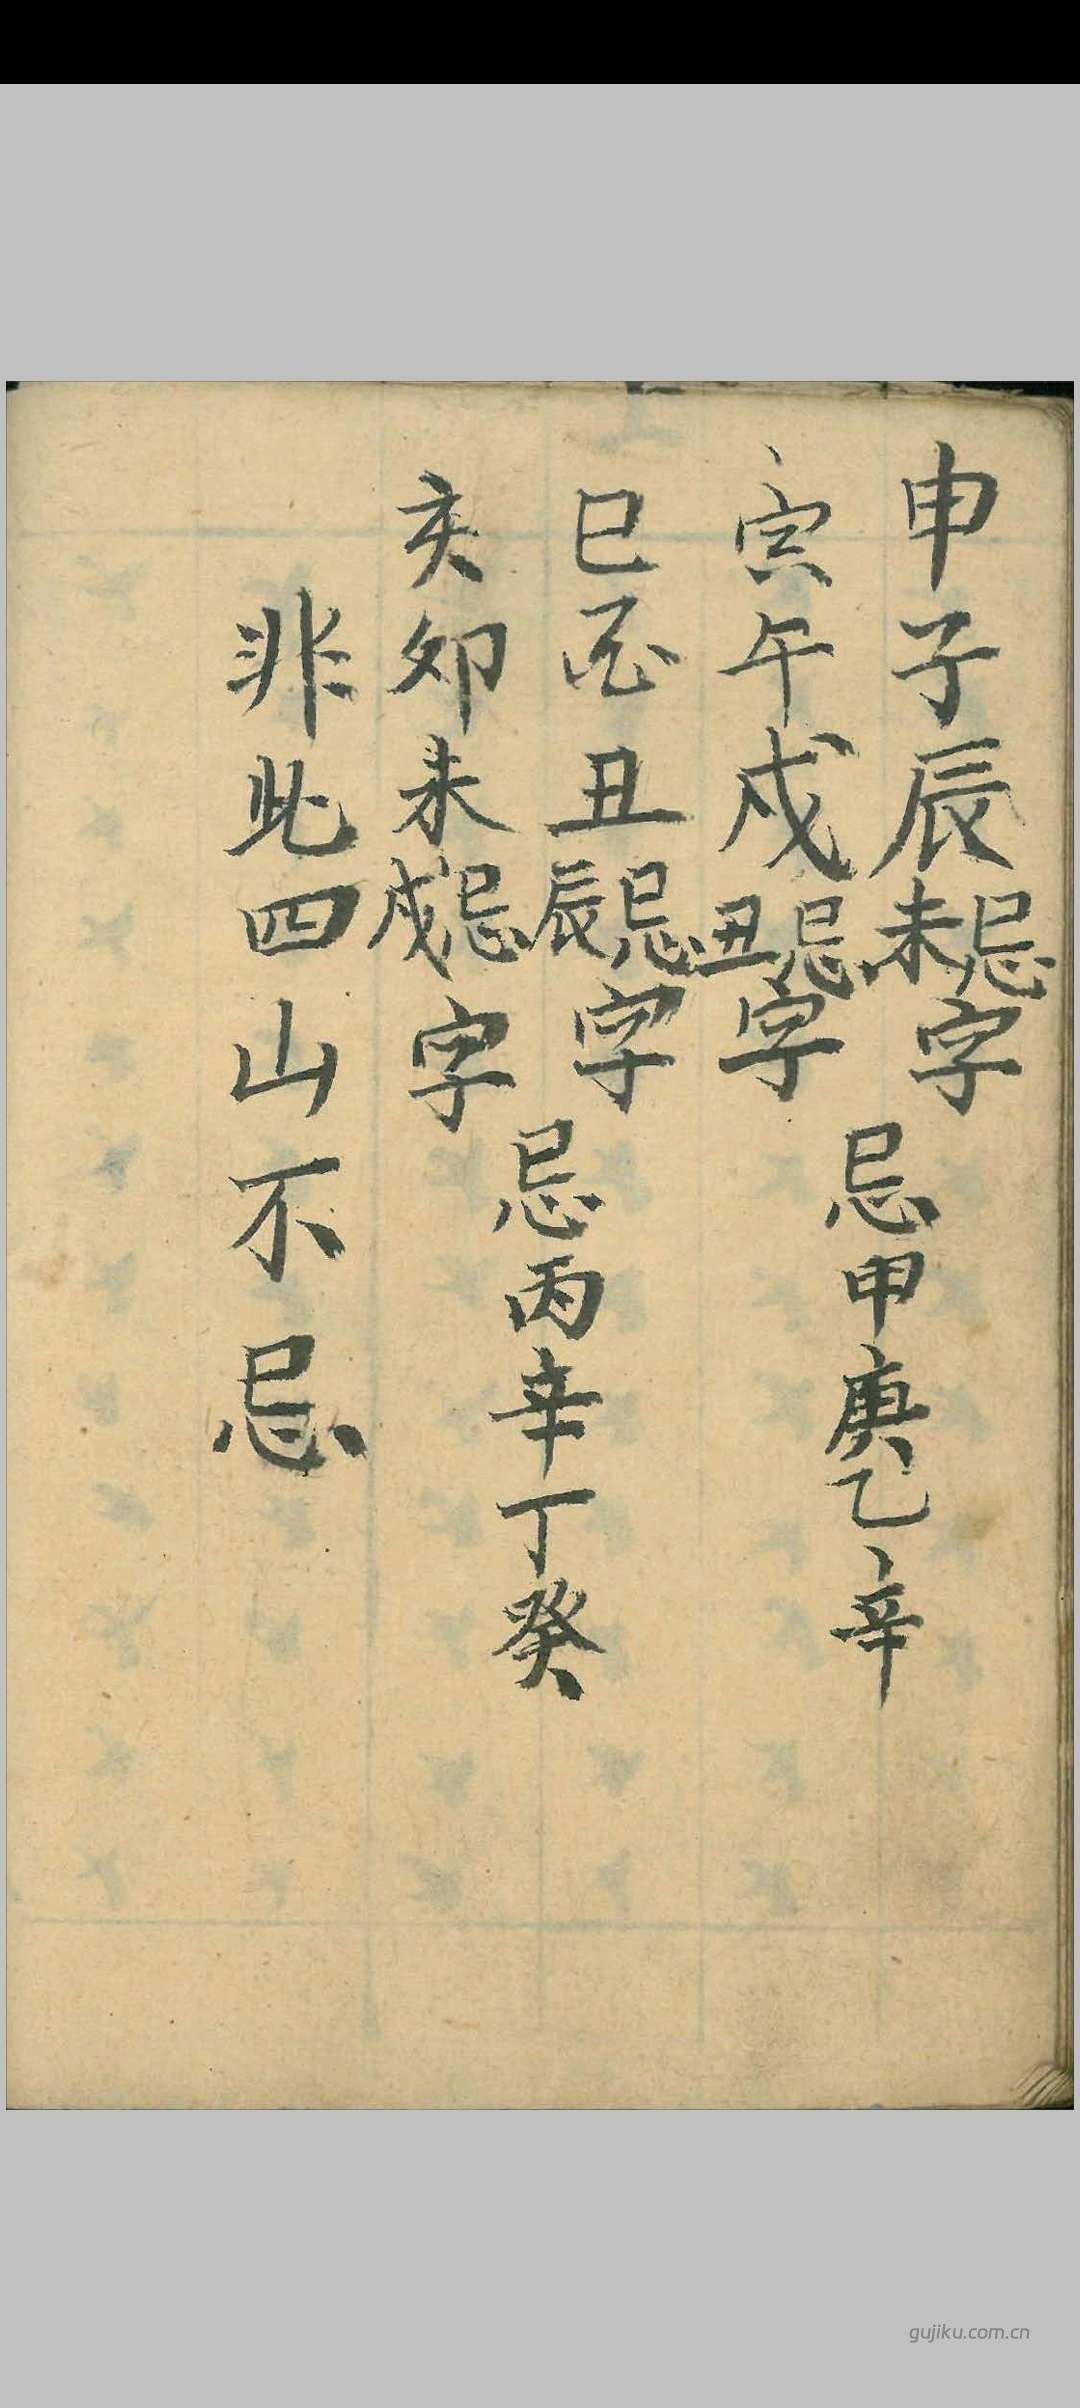 申子辰忌未字
寅午戌忌丑字
忌甲庚乙辛
巳酉丑忌辰字
亥卯未忌戌字
忌丙辛丁癸
非此四山不忌
gujiku.com.cn